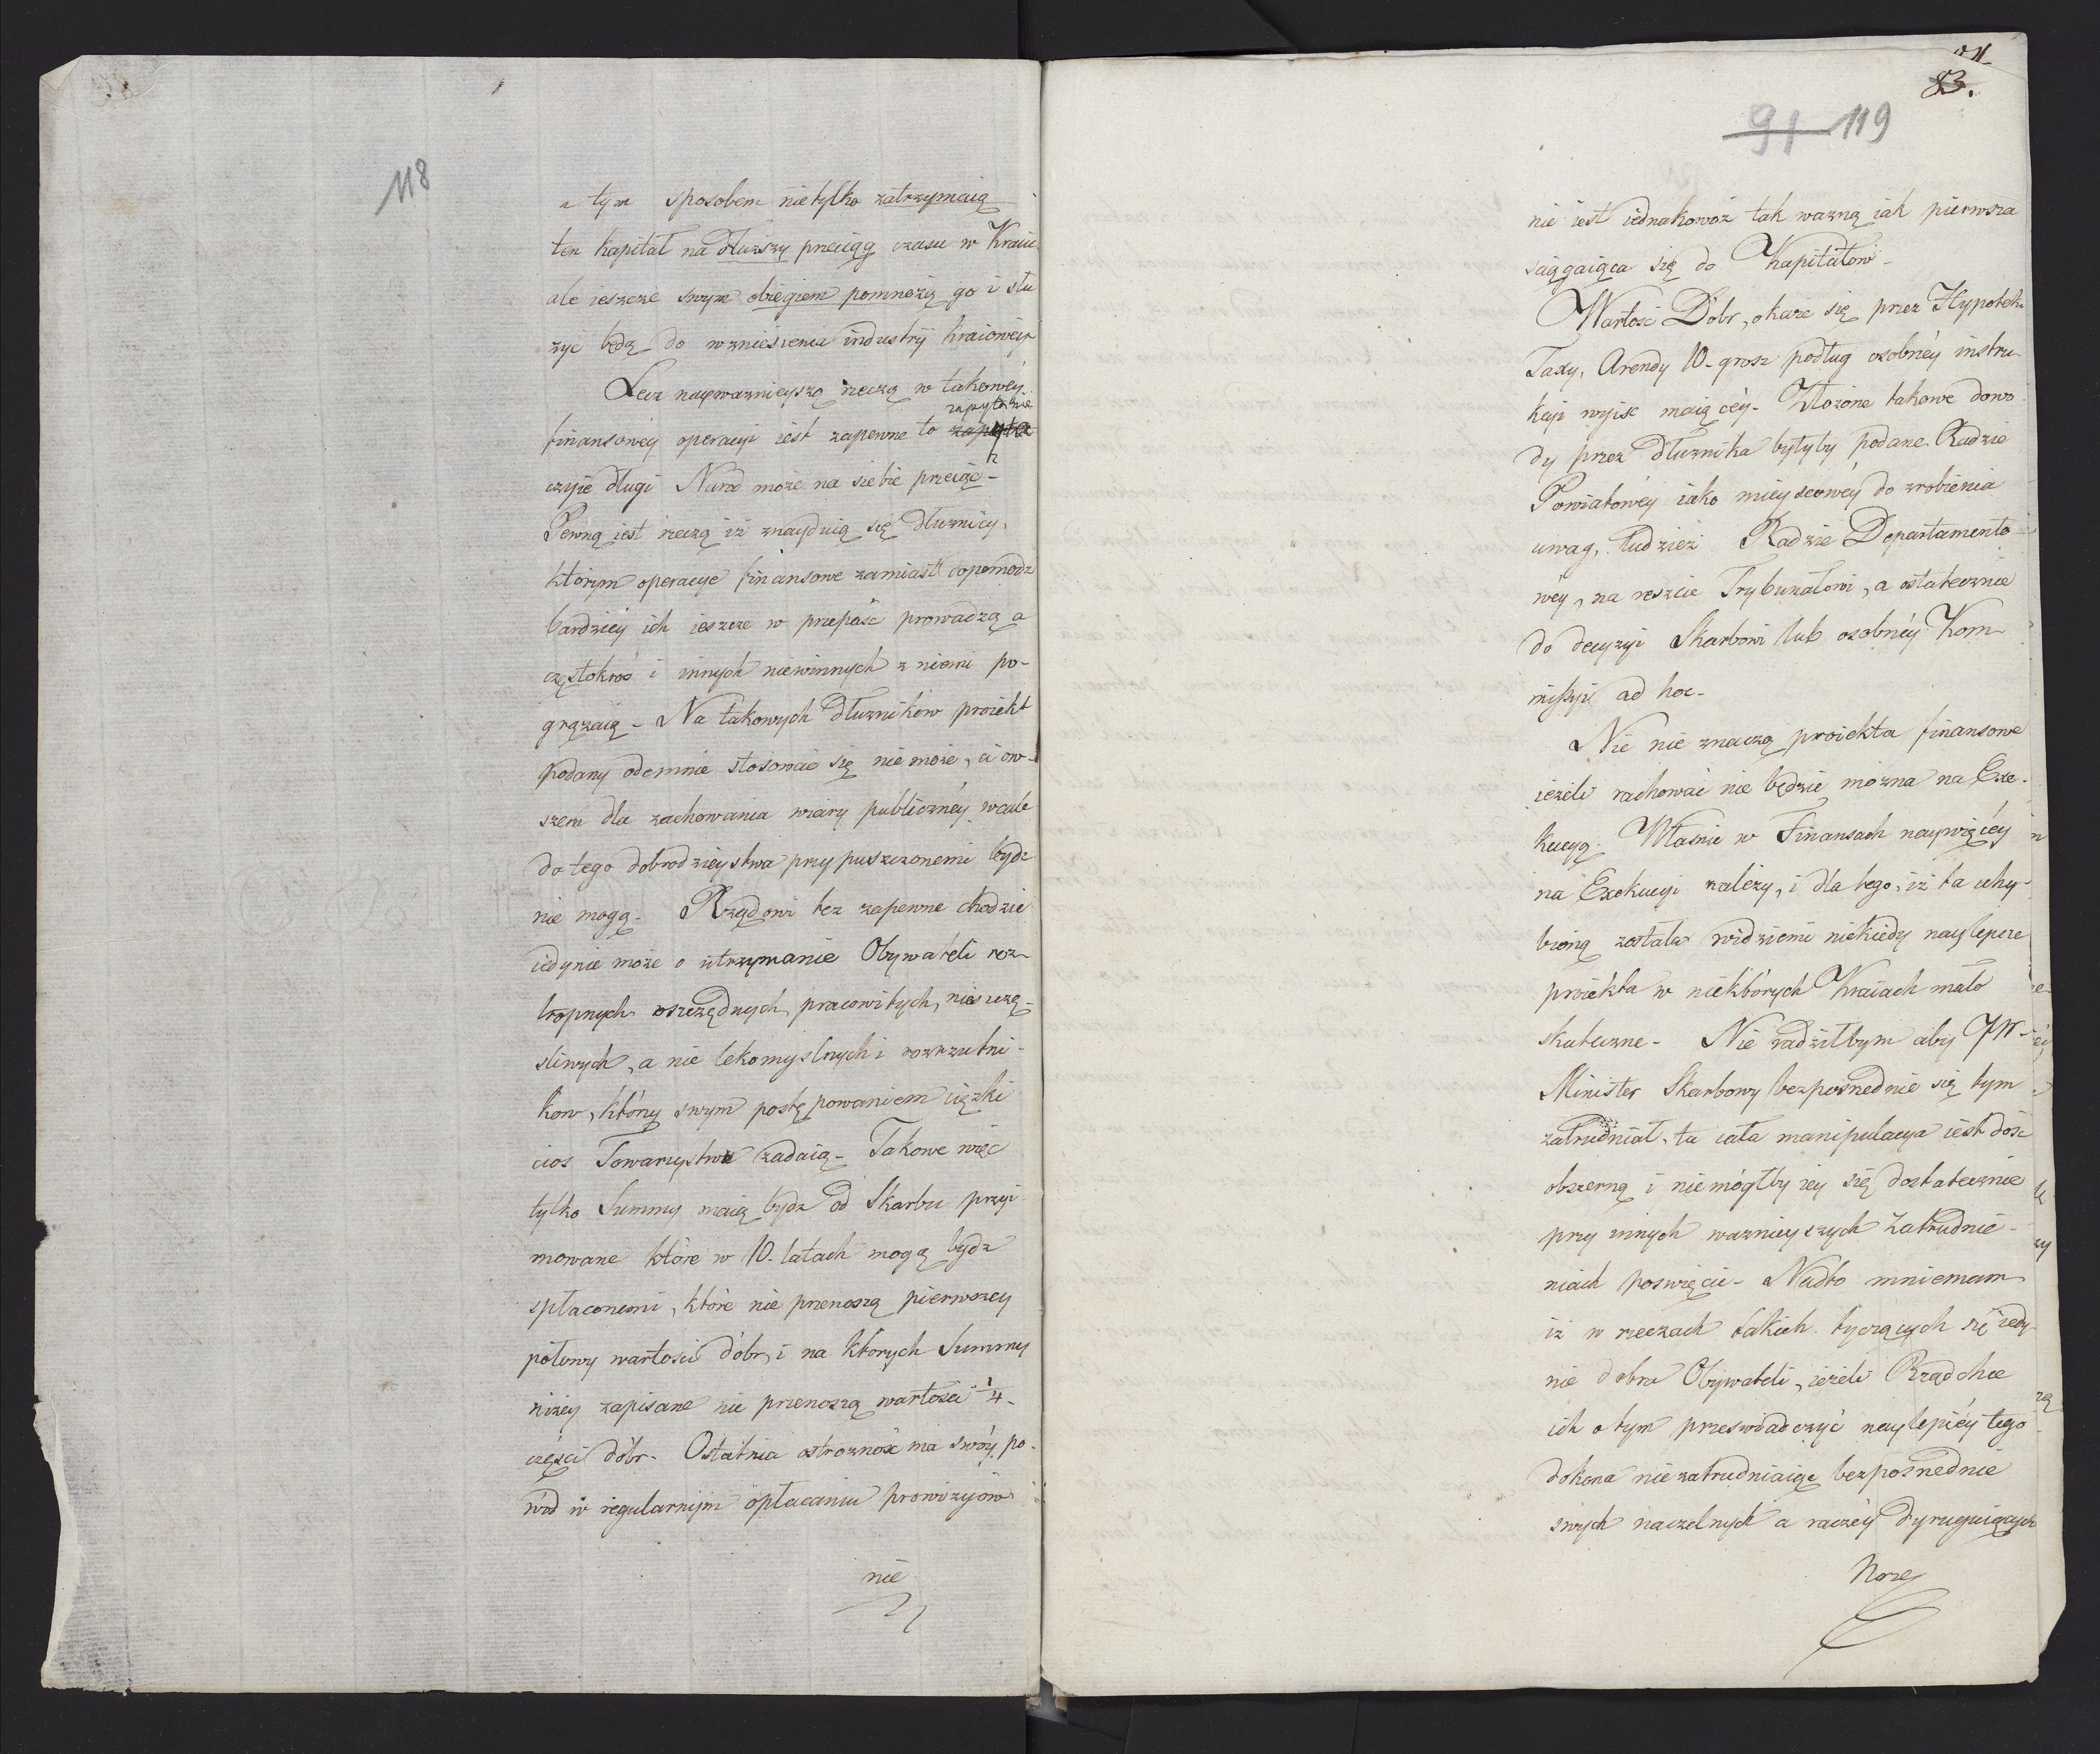 118
a tym sposobem nietylko zatrzymaią
ten kapitał na dłuższy przeciąg czasu w Kraiu
ale ieszcze swym obiegiem pomnożą go i słu
żyć będą do wzniesienia industryi kraiowéy
Lecz nayważnieyszą rzeczą w takowéy
zapytanie
finansowéy operacyi iest zapewne to
czyie długi Naród może na siebie przeiąć-
Pewną iest rzeczą iż znayduią się dłużnicy,
którym operacye finansowe zamiast dopomodz
bardziéy ich ieszcze w przepaść prowadzą a
częstokroć i innych niewinnych z niemi po-
grążaią - Na takowych dłużników proiekt
podany odemnie stosować się nie może, i ow-
szem dla zachowania wiary publicznéy wcale
do tego dobrodzieystwa przypuszczonemi bydz
nie mogą. Rządowi tez zapewne chodzić
iedynie może o utrzymanie Obywateli roz-
tropnych oszczędnych, pracowitych, nieszczę-
śliwych, a nie lekomyslnych i rozrzutni-
kow, którzy swym postępowaniem ciężki
cios Towarzystwu zadaią - Takowe więc
tylko Summy maią bydz od Skarbu przyi-
mowane które w 10. latach mogą bydz
spłaconemi, które nie przenoszą pierwszey
połowy wartości dóbr, i na których Summy
niżey zapisane nie przenoszą wartości 1/4-
części dóbr. Ostatnia ostrożność ma swóy po-
wód w regularnym opłacaniu prowizyiów
nie
83.
91 119
nie iest iednakowoż tak ważną iak pierwsza
sciągaiąca się do Kapitałów-
Wartość Dóbr, okaże się przez Hypoteki
Taxy, Arendy 10. grosz podług osobnéy instru
kcyi wyiść maiącéy. Złożone takowe dowo
dy przez dłużnika byłyby podane Radzie
Powiatowéy iako mieyscowéy do zrobienia
uwag, tudzież Radzie Departamento-
wéy, na reszcie Trybunałowi, a ostatecznie
do decyzyi Skarbowi lub osobnéy Kom-
missyi ad hoc-
Nic nie znaczą proiekta finansowe
ieżeli rachować nie będzie można na Exe-
kucyą. Własnie w Finansach naywięcéy
na Exekucyi należy, i dla tego, iż ta uchy-
bioną została widziemi niekiedy naylepsze
proiekta w niektórych Kraiach mało
skuteczne- Nie radziłbym aby JW-
Minister Skarbowy bezpośrednie się tym
zatrudniał, ta cała manipulacya iest dość
obszerną i niemógłby iey się dostatecznie
przy innych ważnieyszych Zatrudnie-
niach poswięcić - Nadto mniemam
iż w rzeczach takich tyczących się iedy-
nie dobra Obywateli, ieżeli Rząd chce
ich o tym przeswiadczyć naylepiéy tego
dokona niezatrudniaiąc bezpośrednie
swych naczelnych a raczéy dyryguiących